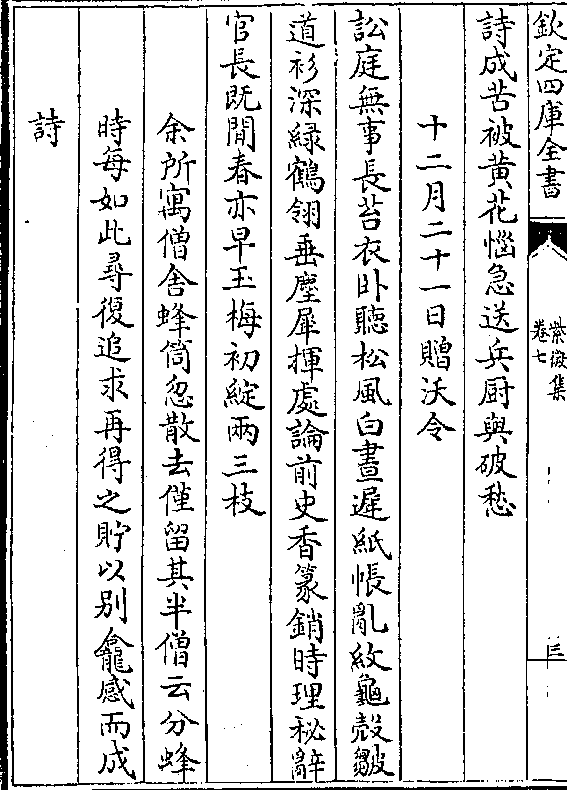 欽定四庫全書
紫微集
卷七
詩成苦被黄花惱急送兵厨與破愁
十二月二十一日贈沃令
訟庭無事長苔衣卧聽松風白晝遲紙帳亂紋龜殻皺
道衫深緑鶴翎垂麈犀揮處論前史香篆銷時理秘辭
官長既閒春亦早玉梅初綻兩三枝
余所寓僧舍蜂筒忽散去僅留其半僧云分蜂
時每如此尋復追求再得之貯以别龕感而成
詩